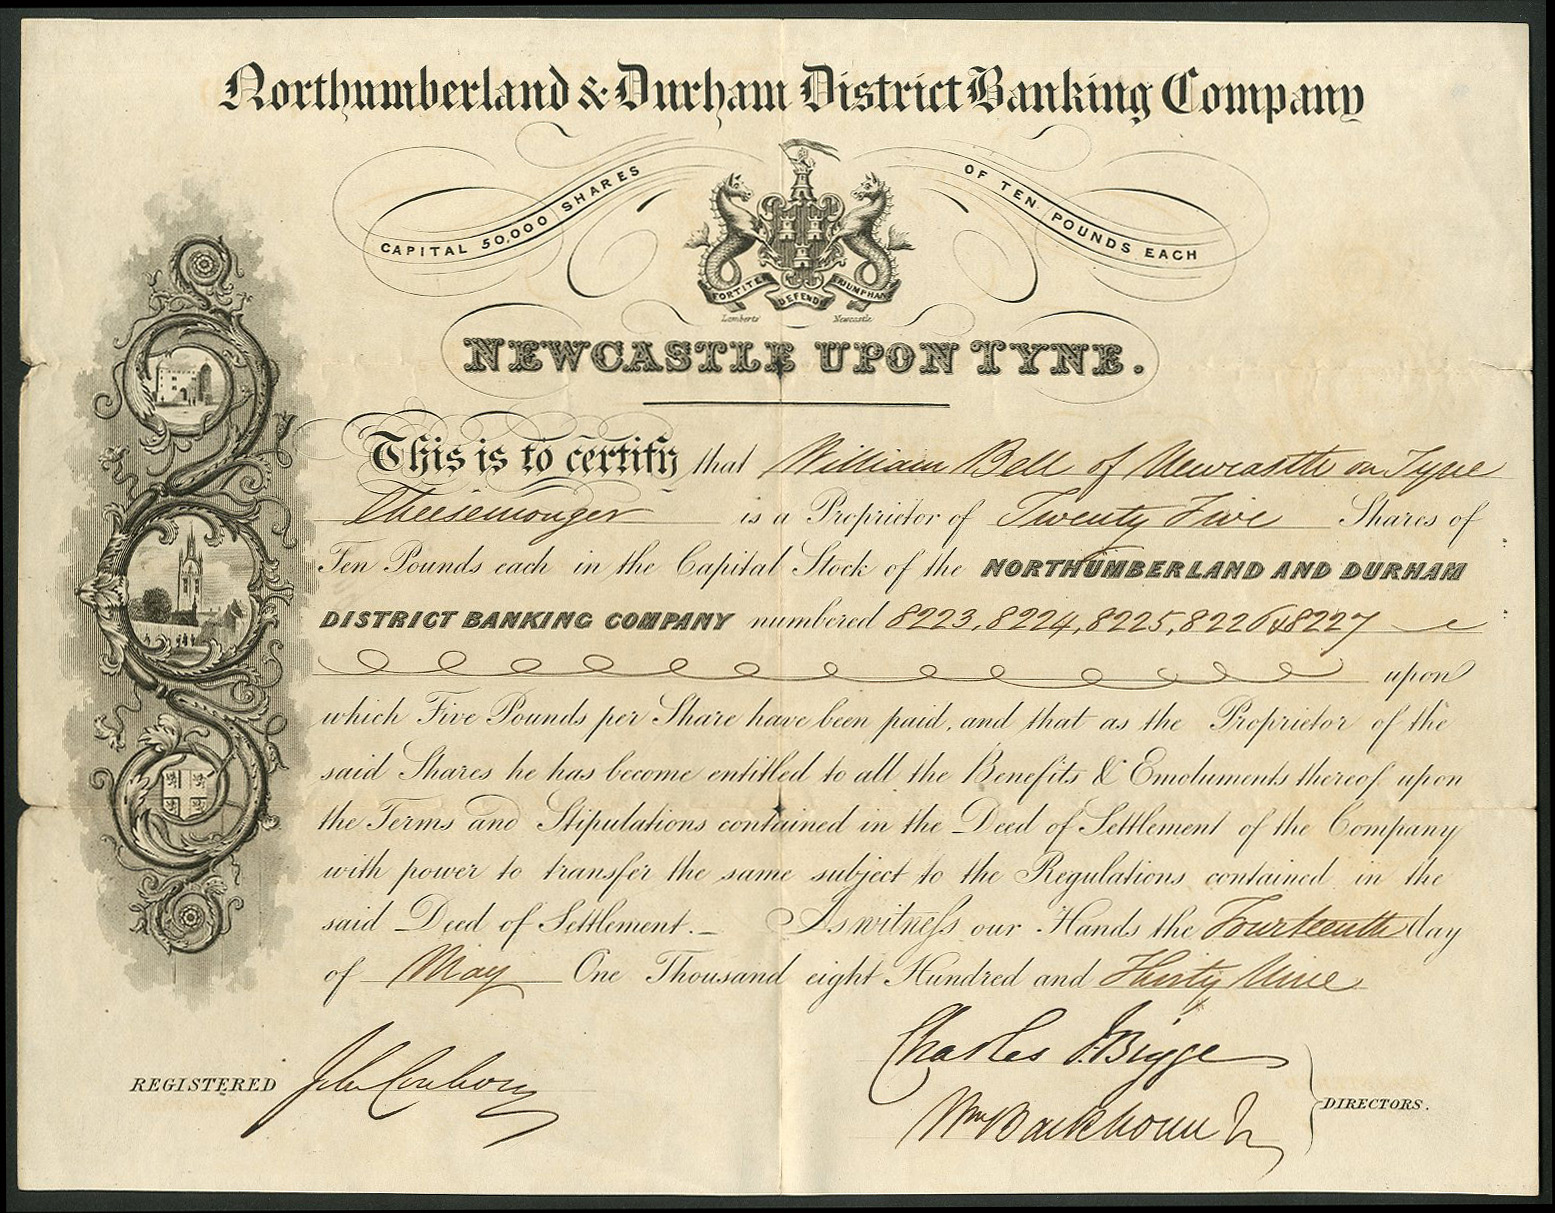 Northumberland & Durham District Banking Company
CAPITAL 50,000 SHARES OF TEN POUNDS EACH
FORTITER DEFENDIT TRIUMPHANS
Lamberts Newcastle
NEWCASTLE UPON TYNE.
This is to certify that William Bell of Newcastle on Tyne
Cheesemonger is a Proprietor of Twenty Five Shares of
Ten Pounds each in the Capital Stock of the NORTHUMBERLAND AND DURHAM
DISTRICT BANKING COMPANY numbered 8223, 8224, 8225, 8226 & 8227
upon
which Five Pounds per Share have been paid, and that as the Proprietor of the
said Shares he has become entitled to all the Benefits & Emoluments thereof upon
the Terms and Stipulations contained in the Deed of Settlement of the Company
with power to transfer the same subject to the Regulations contained in the
said Deed of Settlement. _ As witness our Hands the Fourteenth day
of May One Thousand eight Hundred and Thirty Nine
Charles J. Bigge
REGISTERED John
Wm Backhouse Jr
DIRECTORS.